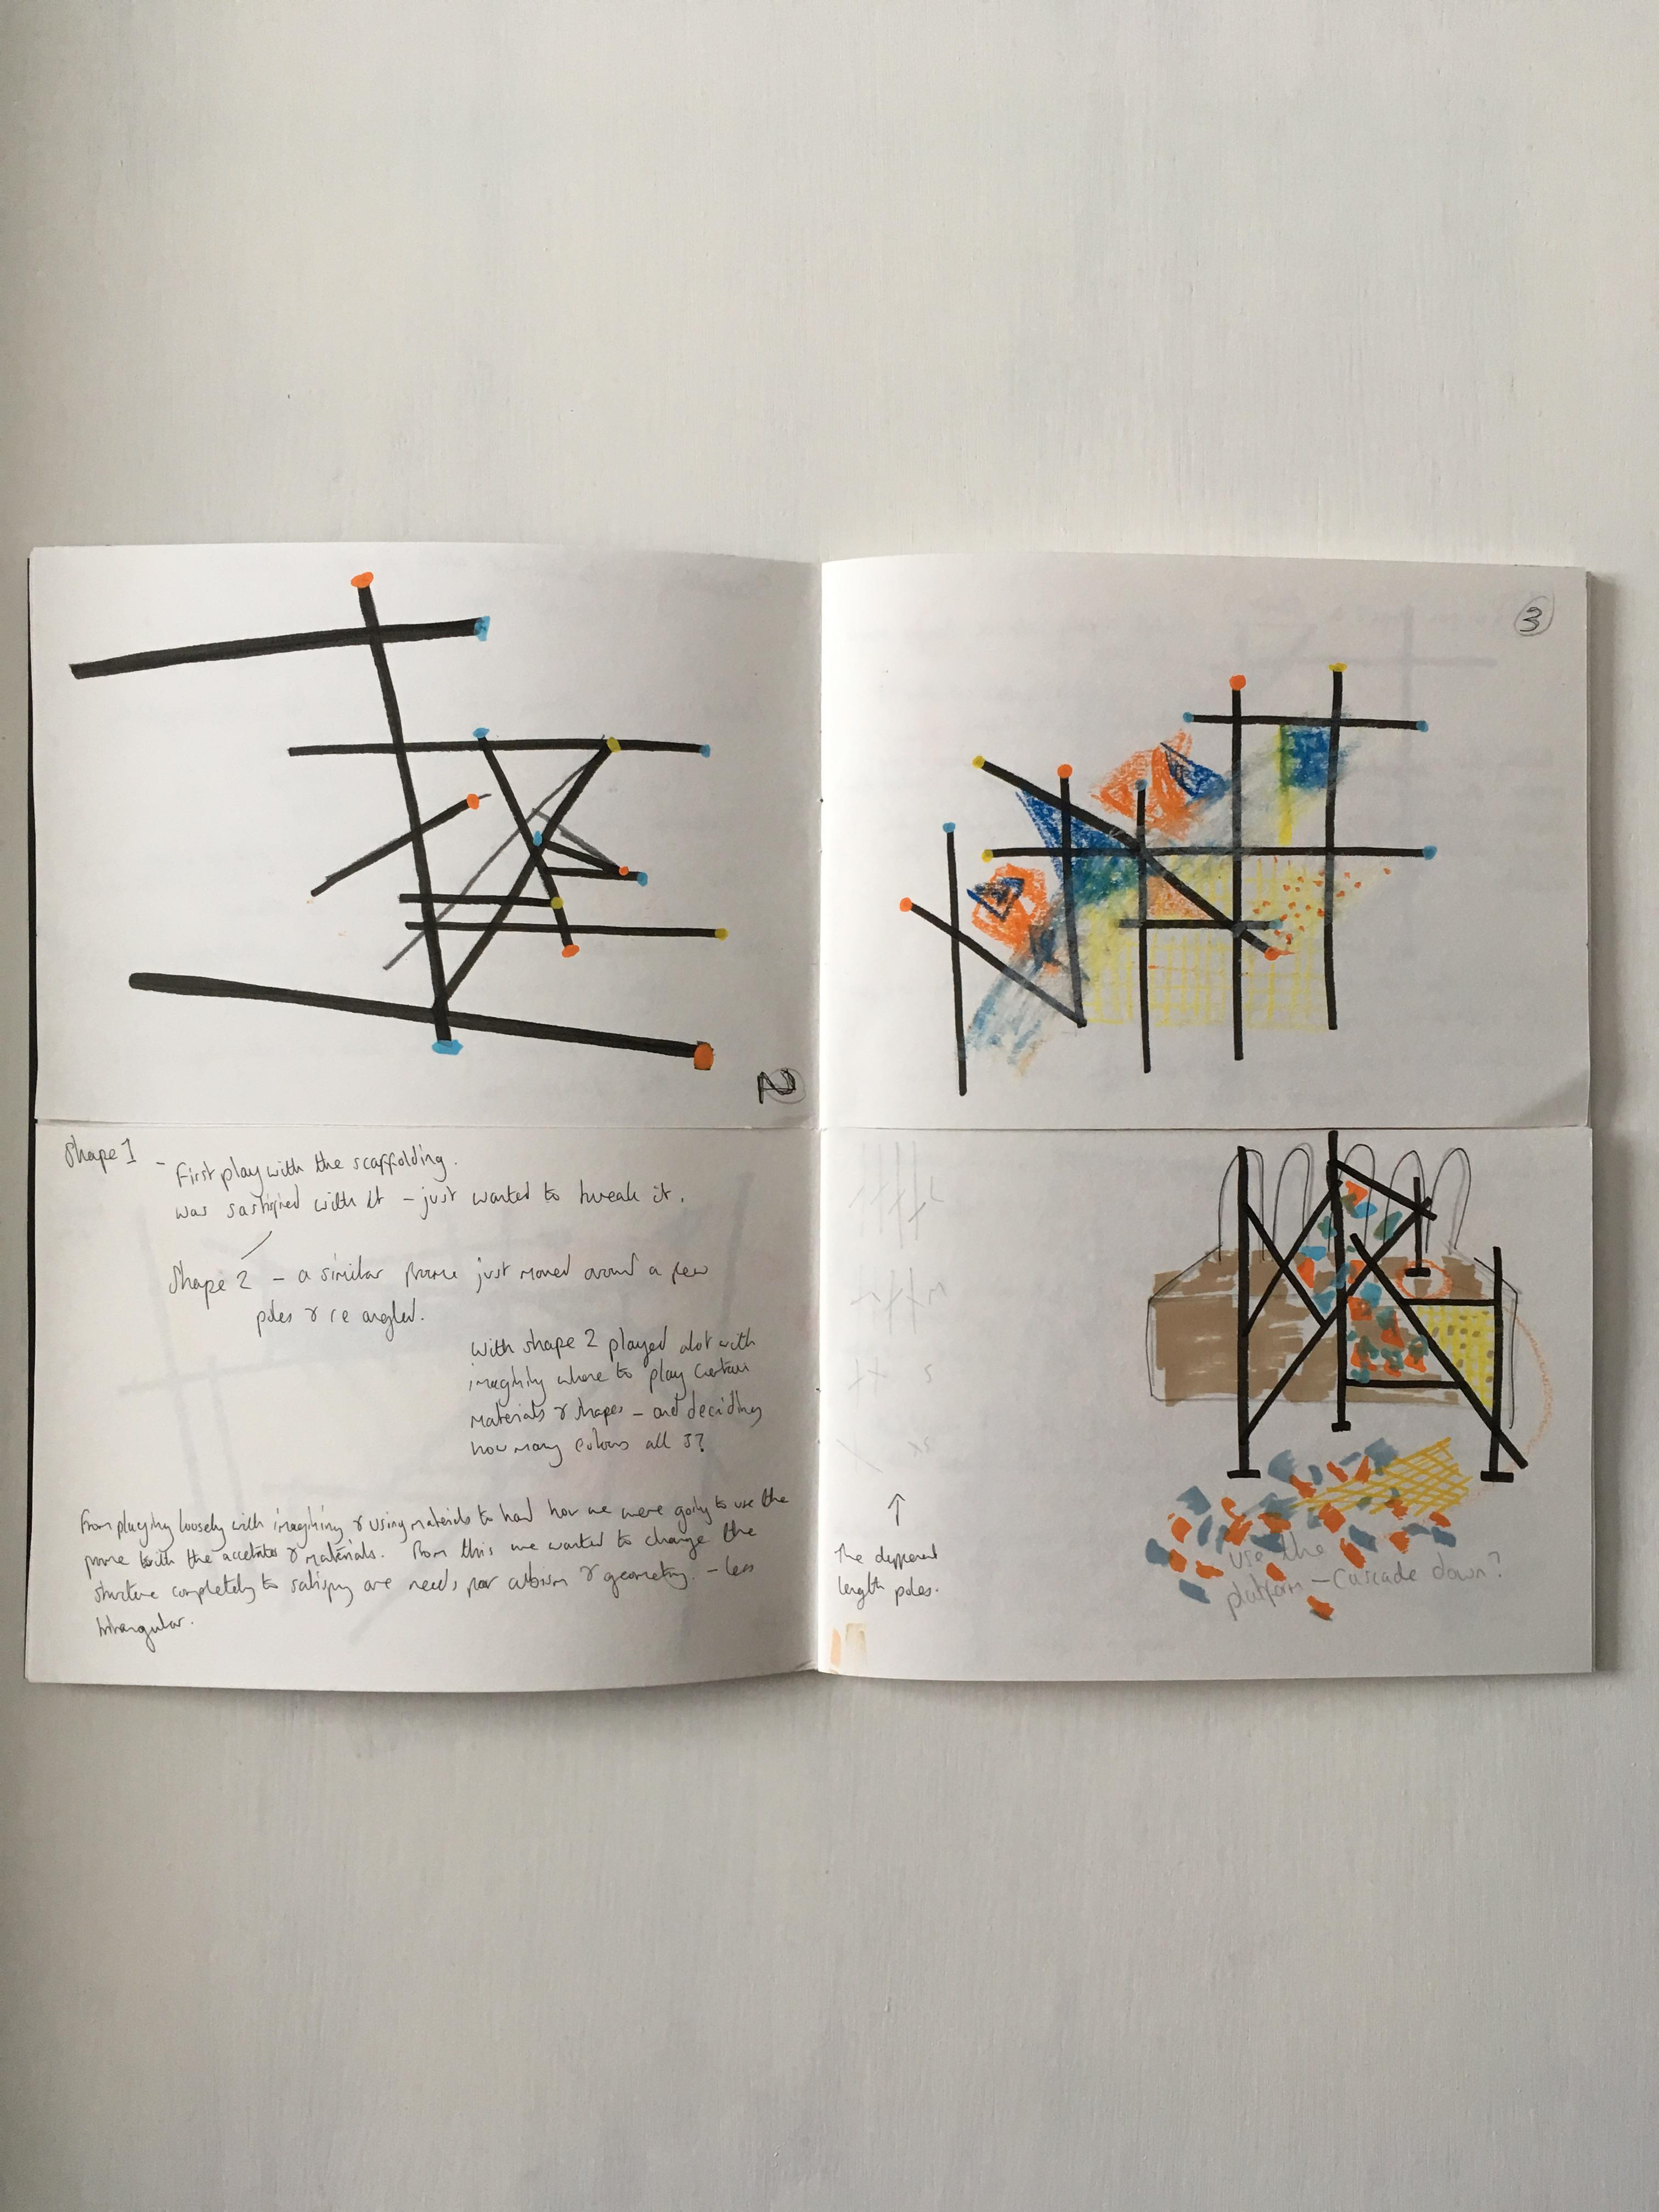 2
3
Shape 1 - First play with the scaffolding.
was satisfied with it - just wanted to tweak it.
Shape 2 - a similar frame just moved around a few
poles & re angled.
With shape 2 played alot with
imagining where to play certain
materials & shapes - and deciding
how many colours all 3?
From playing loosely with imagining & using materials to had how we were going to use the
frame with the acetates & materials. From this we wanted to change the
structure completely to satisfy are needs for cubism & geometry. - less
triangular.
↑
The different
length poles.
use the
platform - Cascade down?